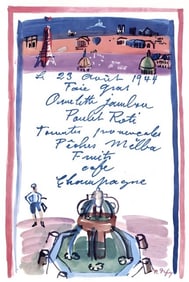 Le 23 août 1944
Foie gras
Omelette jambon
Poulet Roti
Tomates provencales
Pêches Melba
Fruits
café
Champagne